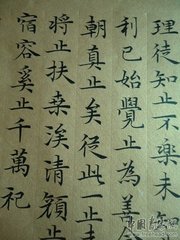 理徒知止不樂未知
利已始覺止為善今
朝真止矣從此一止去
將止扶桒涘清顏止
宿容奚止千萬祀